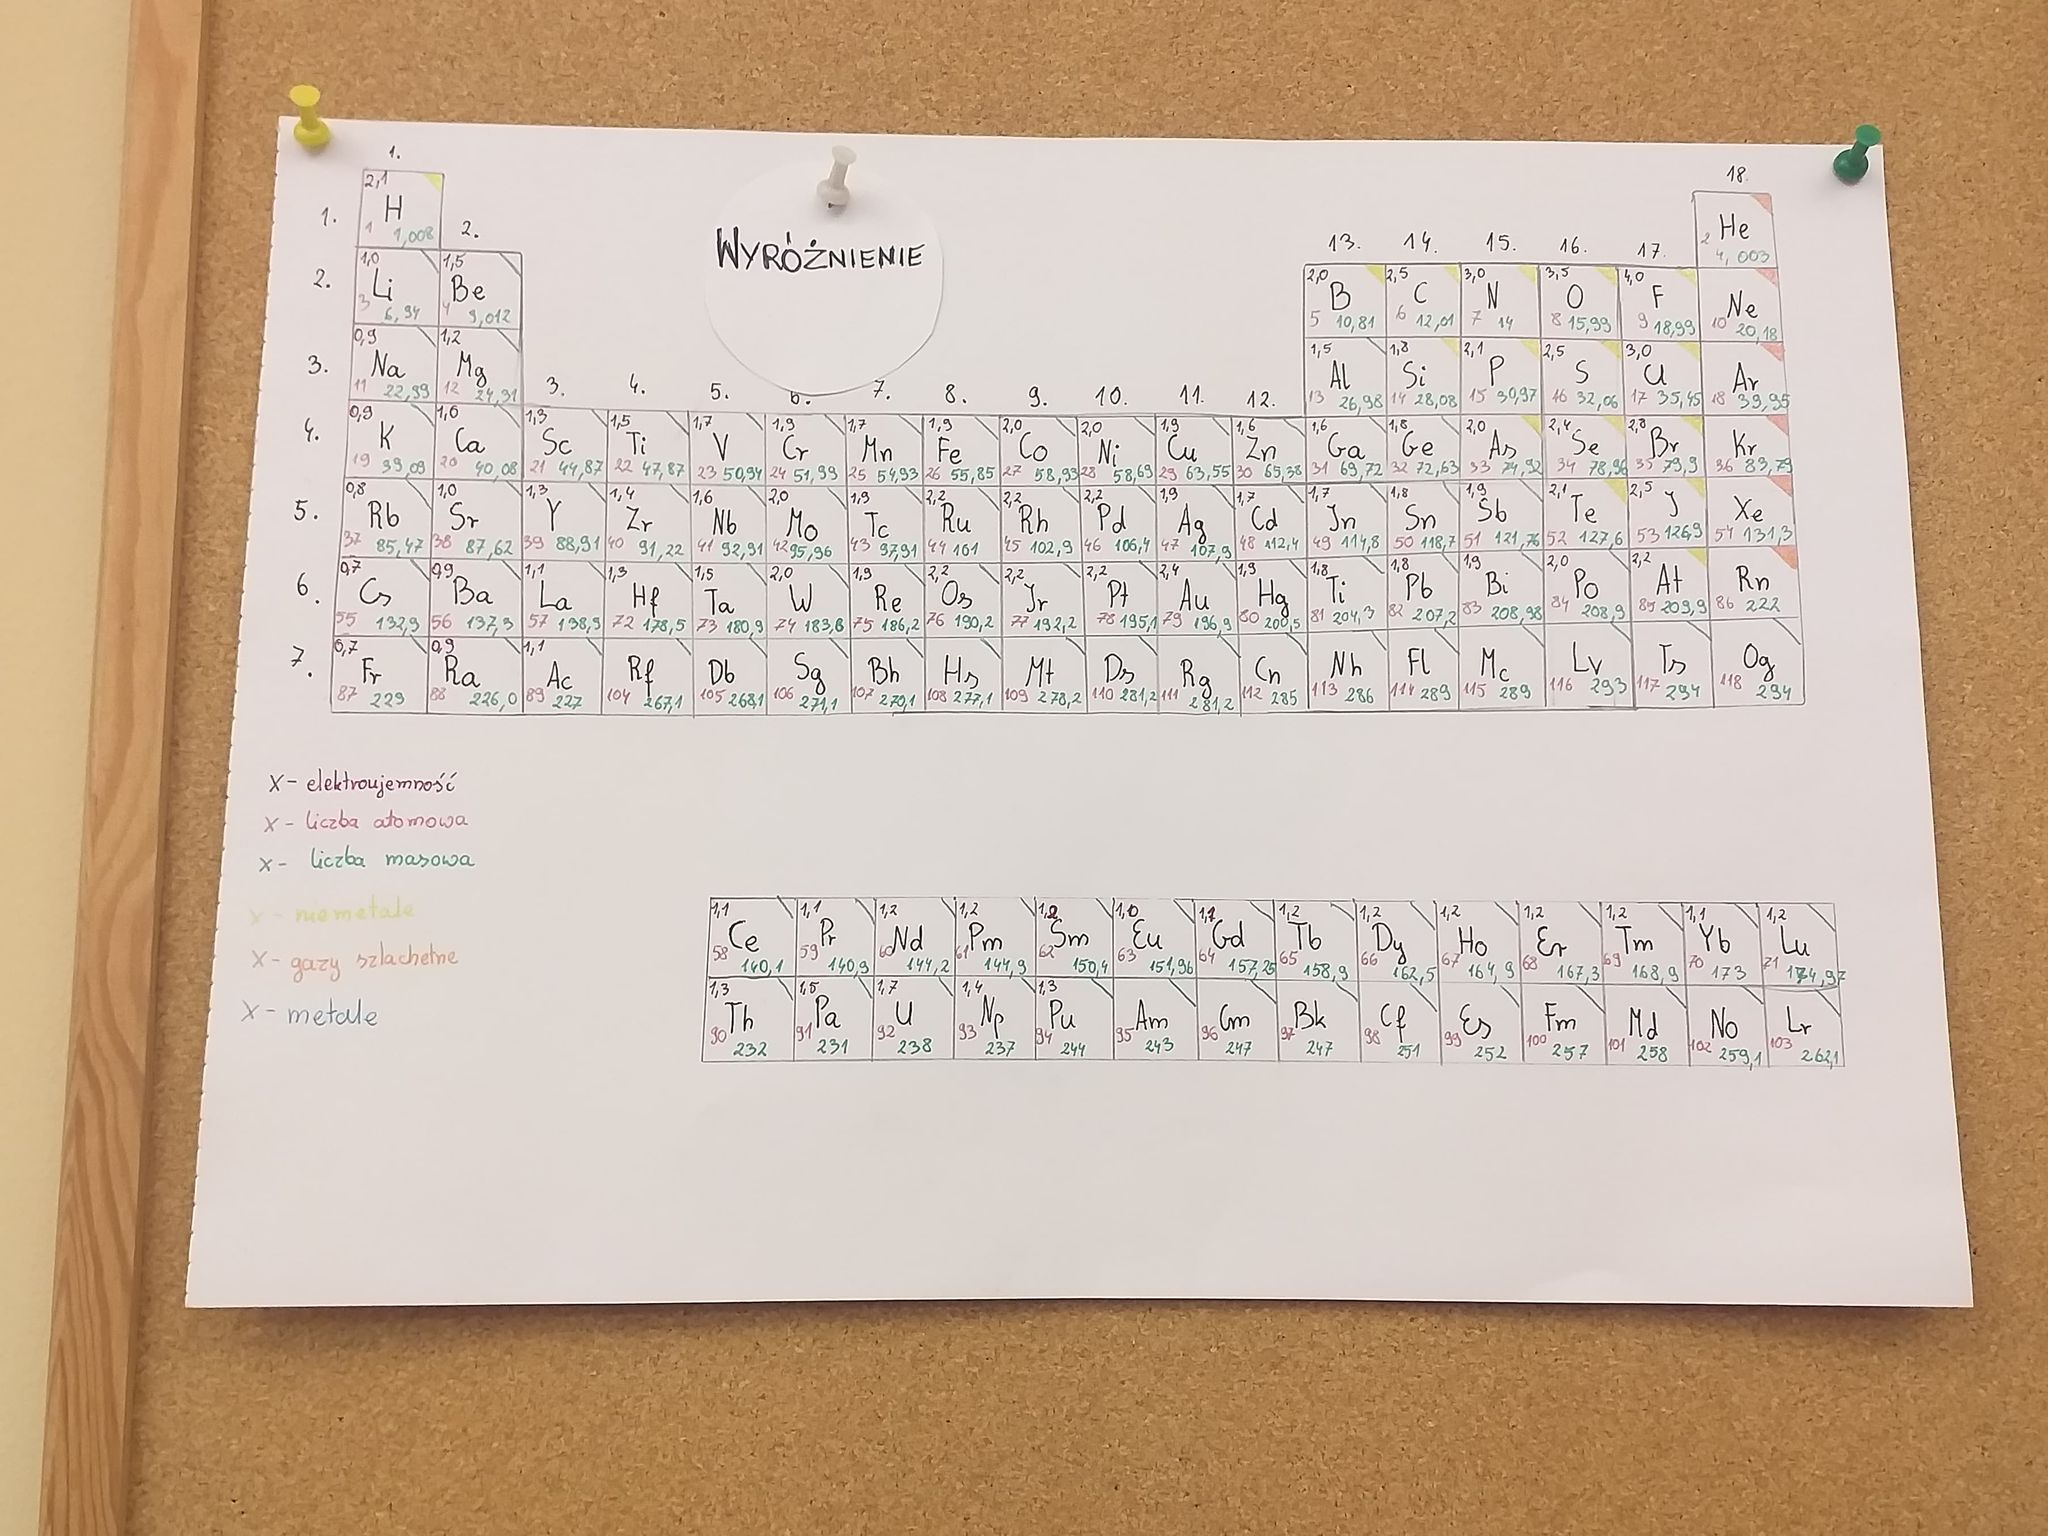 1.
18.
2,1
1.
H
He
1 1,008
2.
2 4,003
WYRÓŻNIENIE
13. 14. 15. 16. 17.
1,0 1,5 2,0 2,5 3,0 3,5 4,0
2. Li Be B C N O F Ne
3 6,94 4 9,012 5 10,81 6 12,01 7 14 8 15,99 9 18,99 10 20,18
0,9 1,2 1,5 1,8 2,1 2,5 3,0
3. Na Mg Al Si P S Cl Ar
11 22,99 12 24,31 13 26,98 14 28,08 15 30,97 16 32,06 17 35,45 18 39,95
3. 4. 5. 6. 7. 8. 9. 10. 11. 12.
0,9 1,0 1,3 1,5 1,7 1,9 1,7 1,9 2,0 2,0 1,9 1,6 1,6 1,8 2,0 2,4 2,8
4. K Ca Sc Ti V Cr Mn Fe Co Ni Cu Zn Ga Ge As Se Br Kr
19 39,09 20 40,08 21 44,87 22 47,87 23 50,94 24 51,99 25 54,93 26 55,85 27 58,93 28 58,69 29 63,55 30 65,38 31 69,72 32 72,63 33 74,92 34 78,96 35 79,9 36 83,79
0,8 1,0 1,3 1,4 1,6 2,0 1,9 2,2 2,2 2,2 1,9 1,7 1,7 1,8 1,9 2,1 2,5
5. Rb Sr Y Zr Nb Mo Tc Ru Rh Pd Ag Cd Jn Sn Sb Te J Xe
37 85,47 38 87,62 39 88,91 40 91,22 41 92,91 42 95,96 43 97,91 44 101 45 102,9 46 106,4 47 107,9 48 112,4 49 114,8 50 118,7 51 121,76 52 127,6 53 126,9 54 131,3
0,7 0,9 1,1 1,3 1,5 2,0 1,9 2,2 2,2 2,2 2,4 1,9 1,8 1,8 1,9 2,0 2,2
6. Cs Ba La Hf Ta W Re Os Jr Pt Au Hg Ti Pb Bi Po At Rn
55 132,9 56 137,3 57 138,9 72 178,5 73 180,9 74 183,8 75 186,2 76 190,2 77 192,2 78 195,1 79 196,9 80 200,5 81 204,3 82 207,2 83 208,98 84 208,9 85 209,9 86 222
0,7 0,9 1,1
7. Fr Ra Ac Rf Db Sg Bh Hs Mt Ds Rg Cn Nh Fl Mc Lv Ts Og
87 223 88 226,0 89 227 104 267,1 105 268,1 106 271,1 107 270,1 108 277,1 109 278,2 110 281,2 111 281,2 112 285 113 286 114 289 115 289 116 293 117 294 118 294
X - elektroujemność
X - liczba atomowa
X - liczba masowa
X - niemetale
X - gazy szlachetne
X - metale
1,1 1,1 1,2 1,2 1,2 1,0 1,1 1,2 1,2 1,2 1,2 1,2 1,1 1,2
Ce Pr Nd Pm Sm Eu Gd Tb Dy Ho Er Tm Yb Lu
58 140,1 59 140,9 60 144,2 61 144,9 62 150,4 63 151,96 64 157,25 65 158,9 66 162,5 67 164,9 68 167,3 69 168,9 70 173 71 174,97
1,3 1,5 1,7 1,4 1,3
Th Pa U Np Pu Am Cm Bk Cf Es Fm Md No Lr
90 232 91 231 92 238 93 237 94 244 95 243 96 247 97 247 98 251 99 252 100 257 101 258 102 259,1 103 262,1